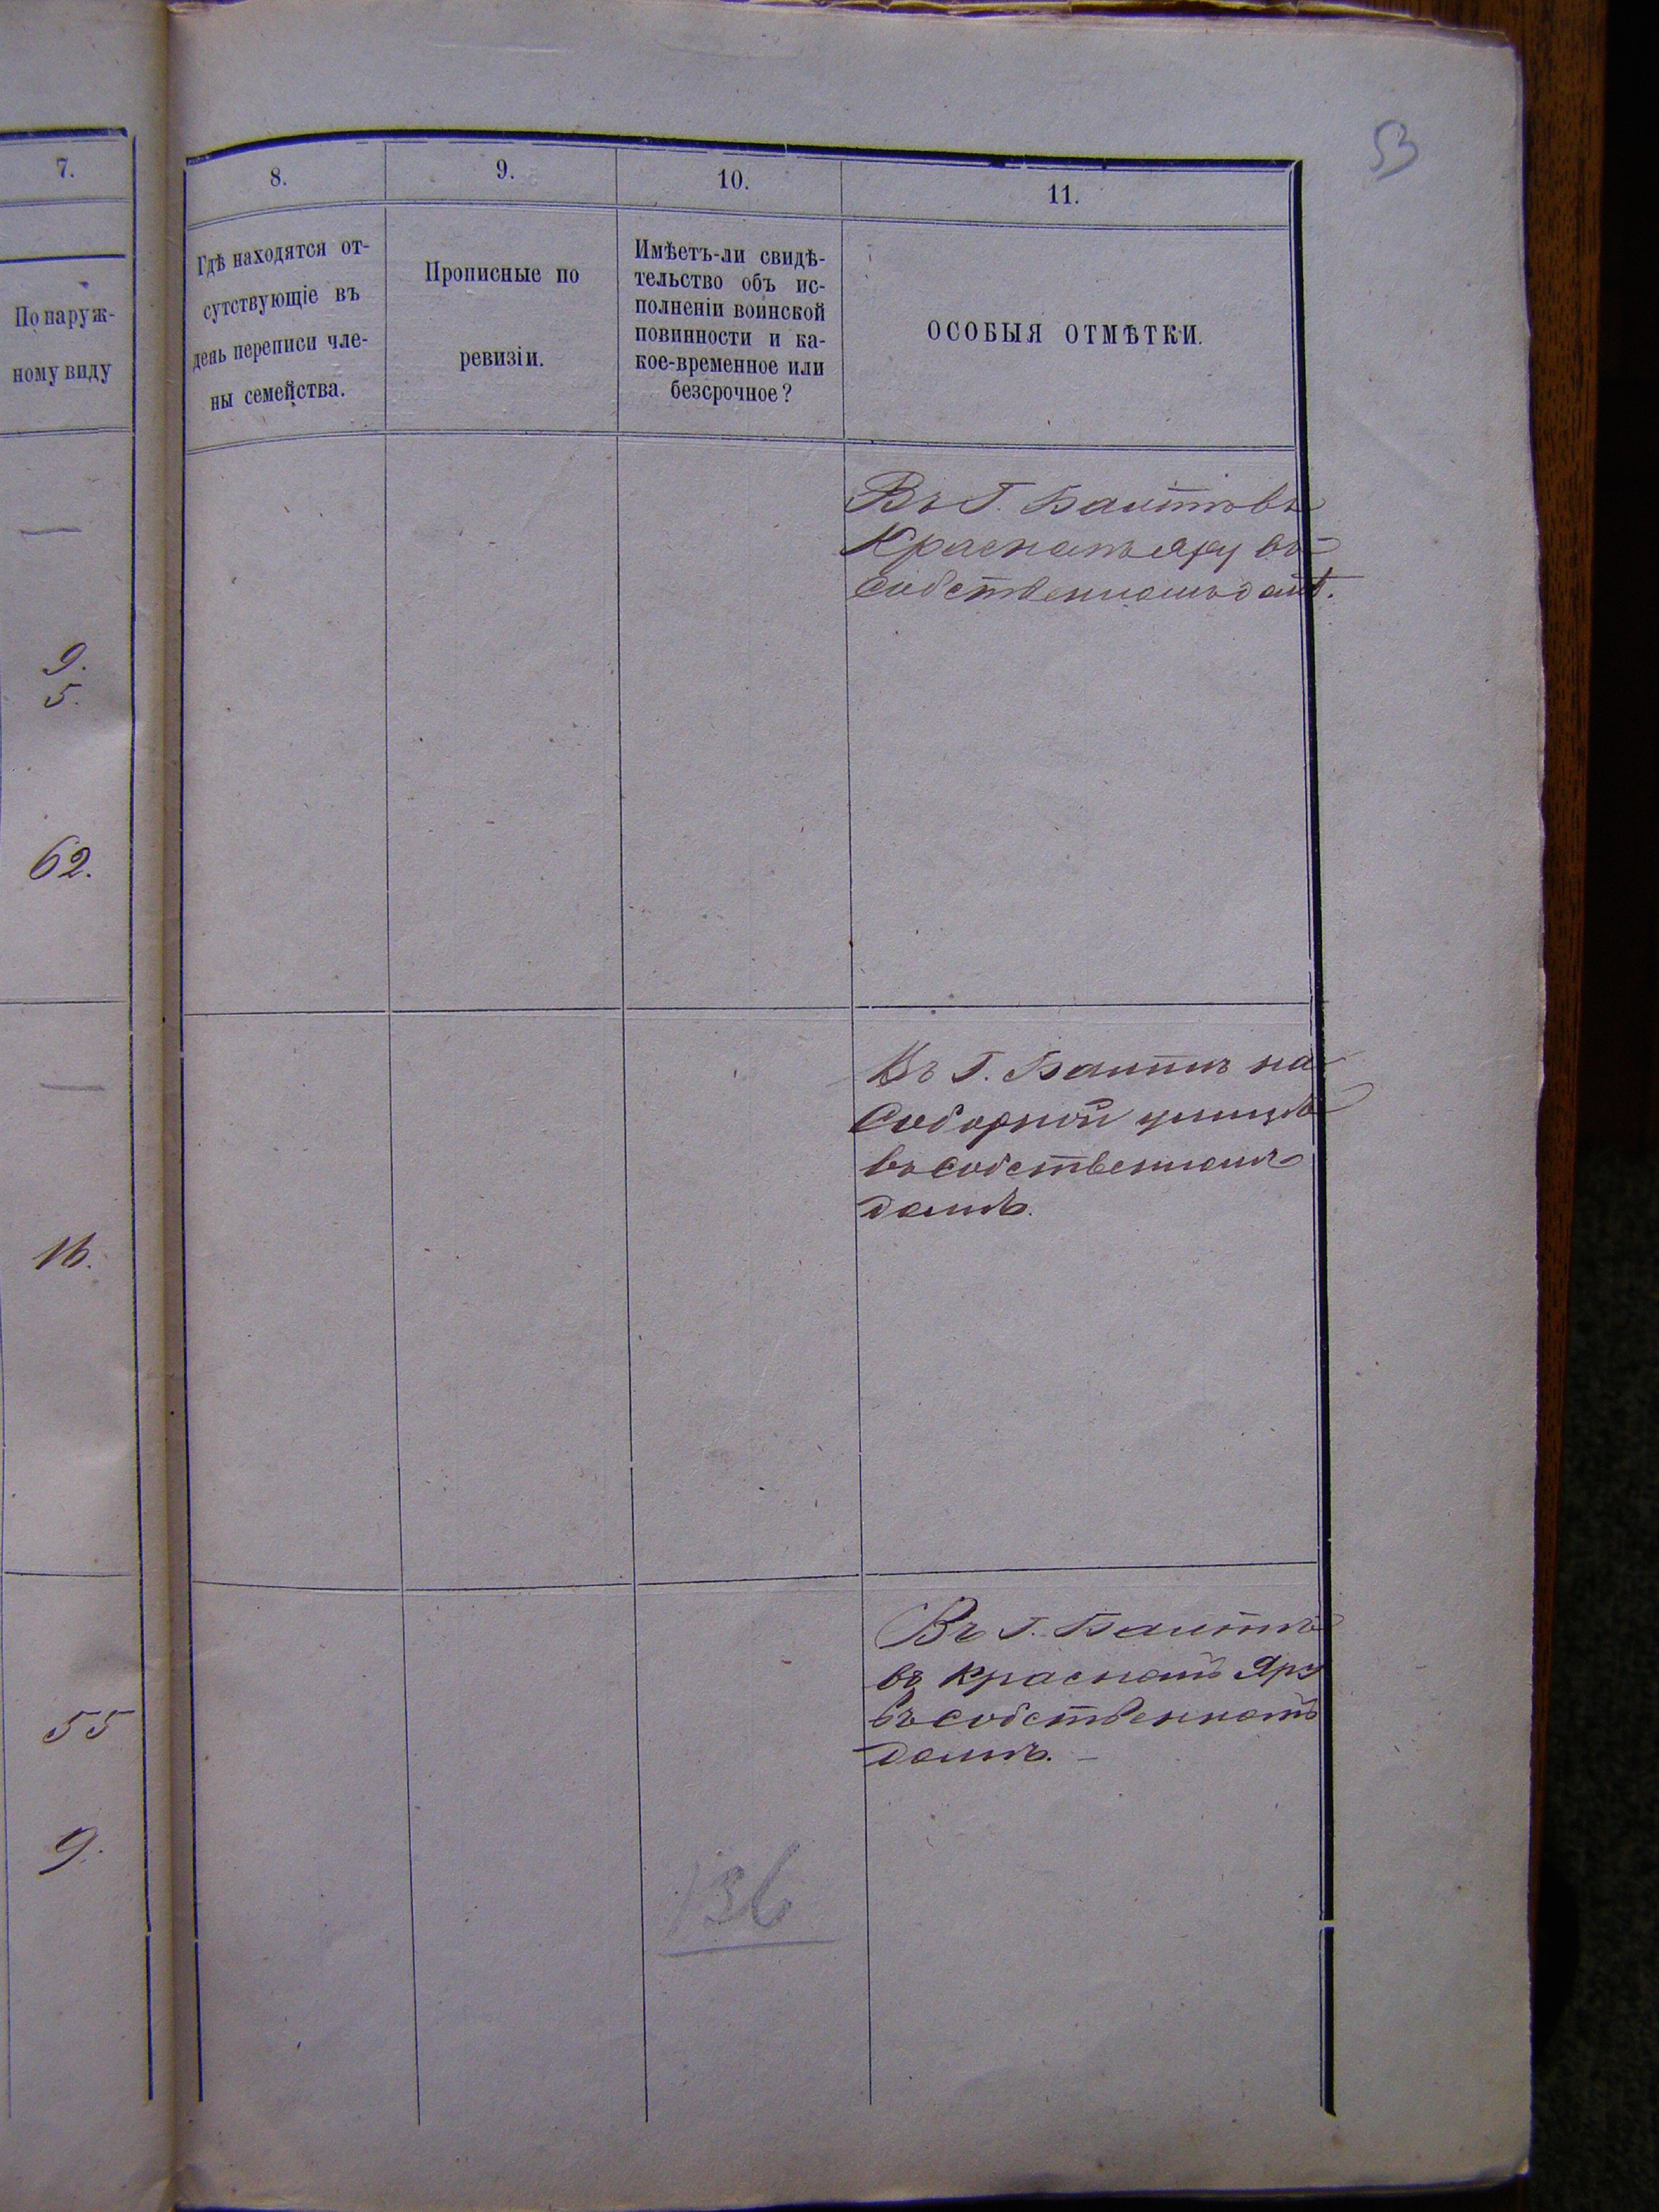 53
7.
По наруж-
ному виду
9.
5.
62.
16.
55
9.
8.
Гдѣ находятся от-
сутствующіе въ
день переписи чле-
ны семейства.
9.
Прописные по
ревизіи.
10.
Имѣетъ-ли свидѣ-
тельство объ ис-
полненіи воинской
повинности и ка-
кое-временное или
безсрочное?
136
11.
ОСОБЫЯ ОТМѢТКИ.
Въ Г. Балтѣ въ
Красномъ Яру въ
собственномъ домѣ.
Въ Г. Балтѣ на
Соборной улицѣ
въ собственномъ
домѣ.
Въ Г. Балтѣ
въ Красномъ Яру
въ собственномъ
домѣ.